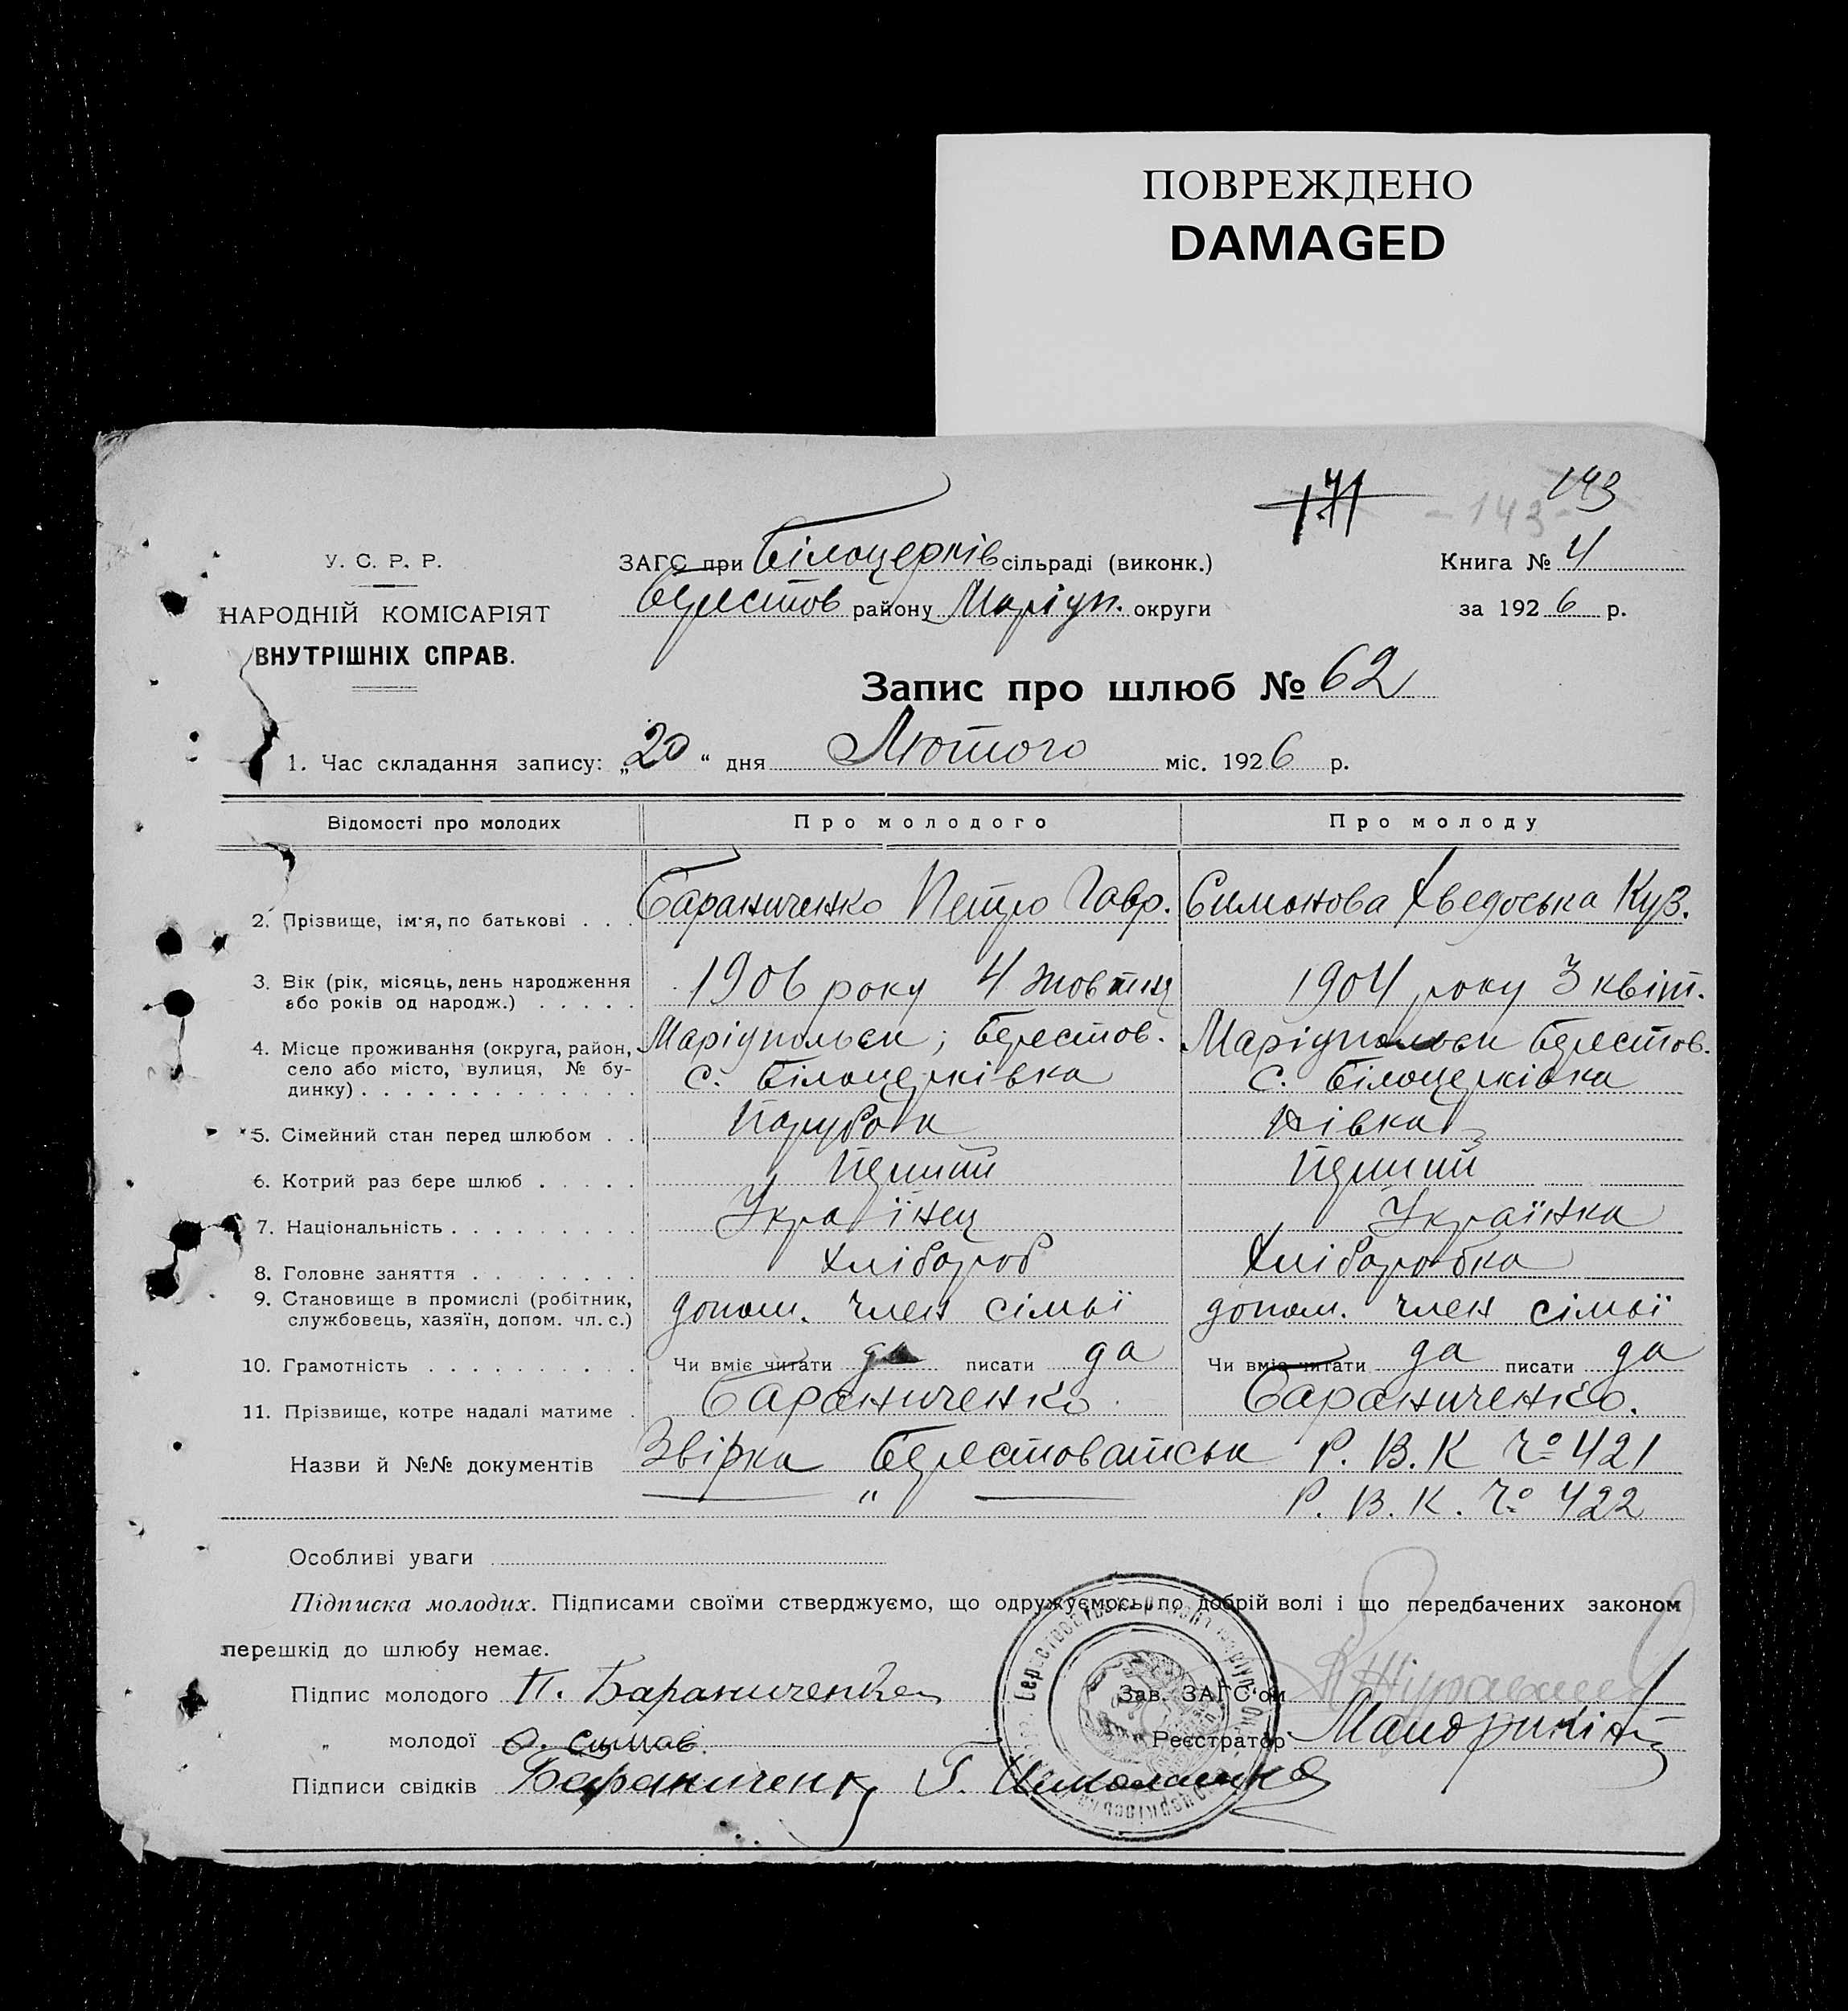 ПОВРЕЖДЕНО
DAMAGED
171 - 143 - 143
У. С. Р. Р.
ЗАГС при Білоцерків сільраді (виконк.)
Книга № 4
НАРОДНІЙ КОМІСАРІЯТ
Берестов району Маріуп. округи
за 1926 р.
ВНУТРІШНІХ СПРАВ.
Запис про шлюб № 62
1. Час складання запису: „20“ дня Лютого міс. 1926 р.
Відомості про молодих Про молодого Про молоду
2. Прізвище, ім'я, по батькові . . . Бараниченко Петро Гавр. Симонова Хведоська Куз.
3. Вік (рік, місяць, день народження або років од народж.) . . . . . 1906 року 4 жовтня 1904 року 3 квіт.
4. Місце проживання (округа, район, Маріупольськ; Берестов. Маріупольськ Берестов.
село або місто, вулиця, № будинку) . . . . . . . . . . . . . с. Білоцерківка с. Білоцерківка
5. Сімейний стан перед шлюбом . . Парубок Дівка
6. Котрий раз бере шлюб . . . . . Перший Перший
7. Національність . . . . . . . . . Українец Українка
8. Головне заняття . . . . . . . . Хлібороб Хліборобка
9. Становище в промислі (робітник, службовець, хазяїн, допом. чл. с.) допом. член сімьї допом. член сімьї
10. Грамотність . . . . . . . . . . Чи вміє читати да писати да Чи вміє читати да писати да
11. Прізвище, котре надалі матиме . Бараниченко. Бараниченко.
Назви й №№ документів Звірка Берестоватськ Р. В. К № 421
— " — Р. В. К. № 422
Особливі уваги
Підписка молодих. Підписами своїми стверджуємо, що одружуємось по добрій волі і що передбачених законом
перешкід до шлюбу немає.
Підпис молодого П. Бараниченко Зав. ЗАГС'ом
„ молодої Ѳ. Симов. Реєстратор
Підписи свідків Бараниченко Г.